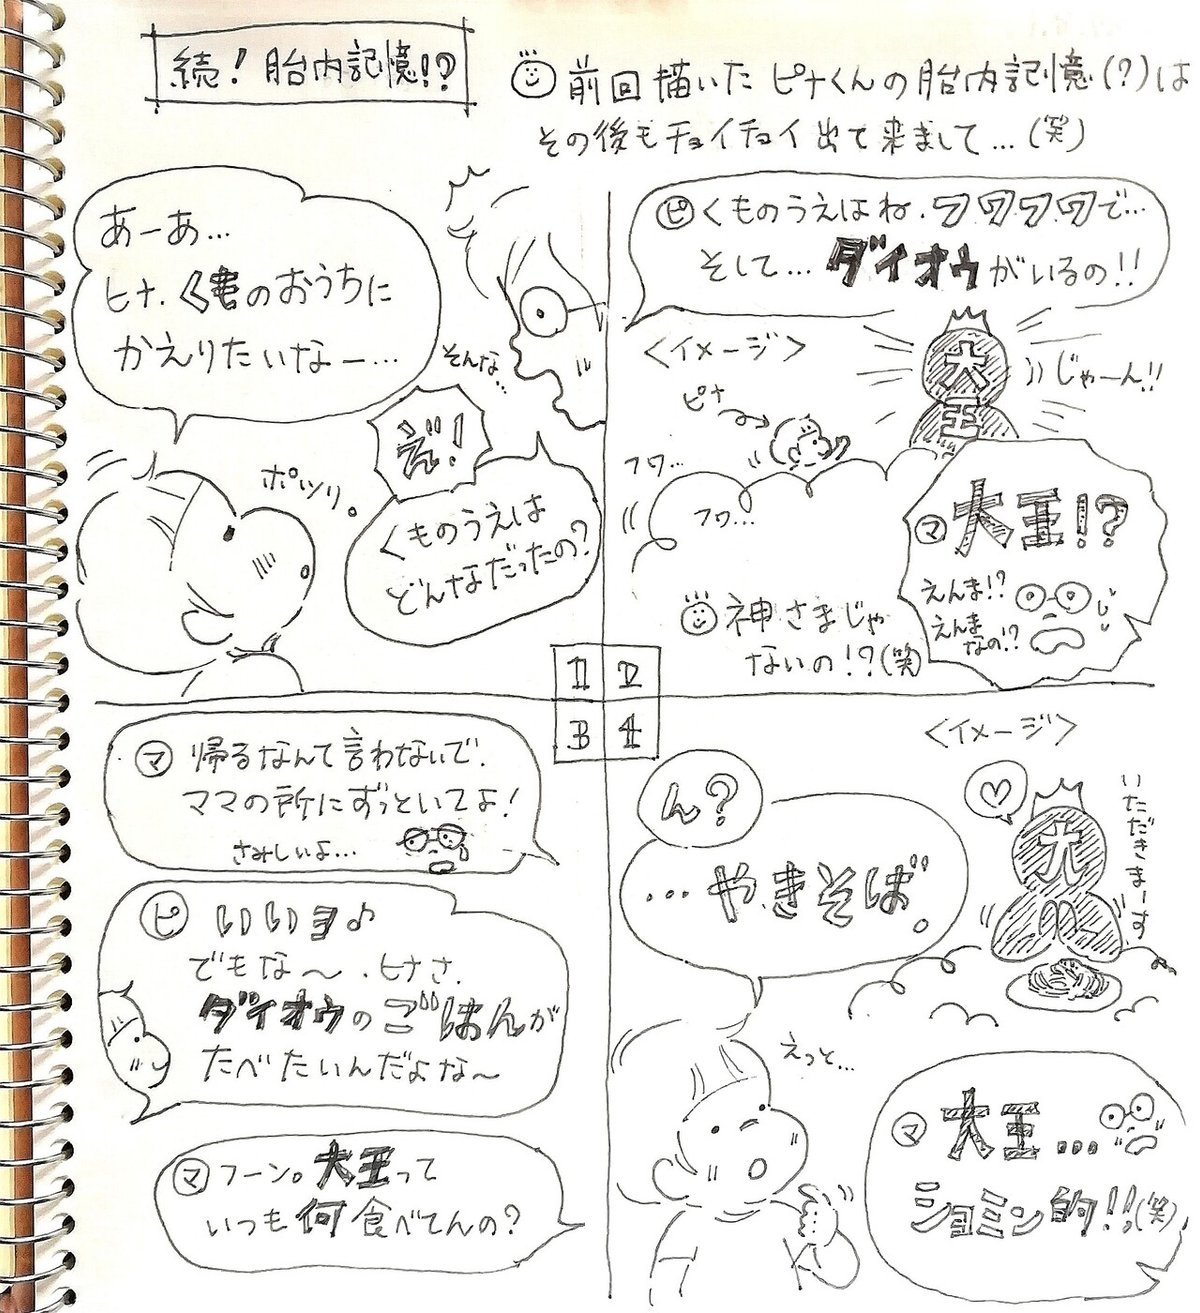 続！胎内記憶!?
前回描いたピナくんの胎内記憶(?)は
その後もチョイチョイ出て来まして…(笑)
あーあ…
ヒナ、くものおうちに
かえりたいなー…
そんな…
ポツリ。
え！
くものうえは
どんなだったの？
ピ くものうえはね、フワフワで…
そして…ダイオウがいるの!!
<イメージ>
大王
じゃーん!!
ピナ
フワ…
フワ…
マ 大王!?
えんま!?
えんま
なの!?
神さまじゃ
ないの!?(笑)
1 2
3 4
マ 帰るなんて言わないで、
ママの所にずっといてよ！
さみしいよ…
ピ いいヨ♪
でもな〜、ヒナさ、
ダイオウのごはんが
たべたいんだよな〜
マ フーン。大王って
いつも何食べてんの？
<イメージ>
ん？
…やきそば。
大
いただきまーす
えっと…
マ 大王…
ショミン的!!(笑)